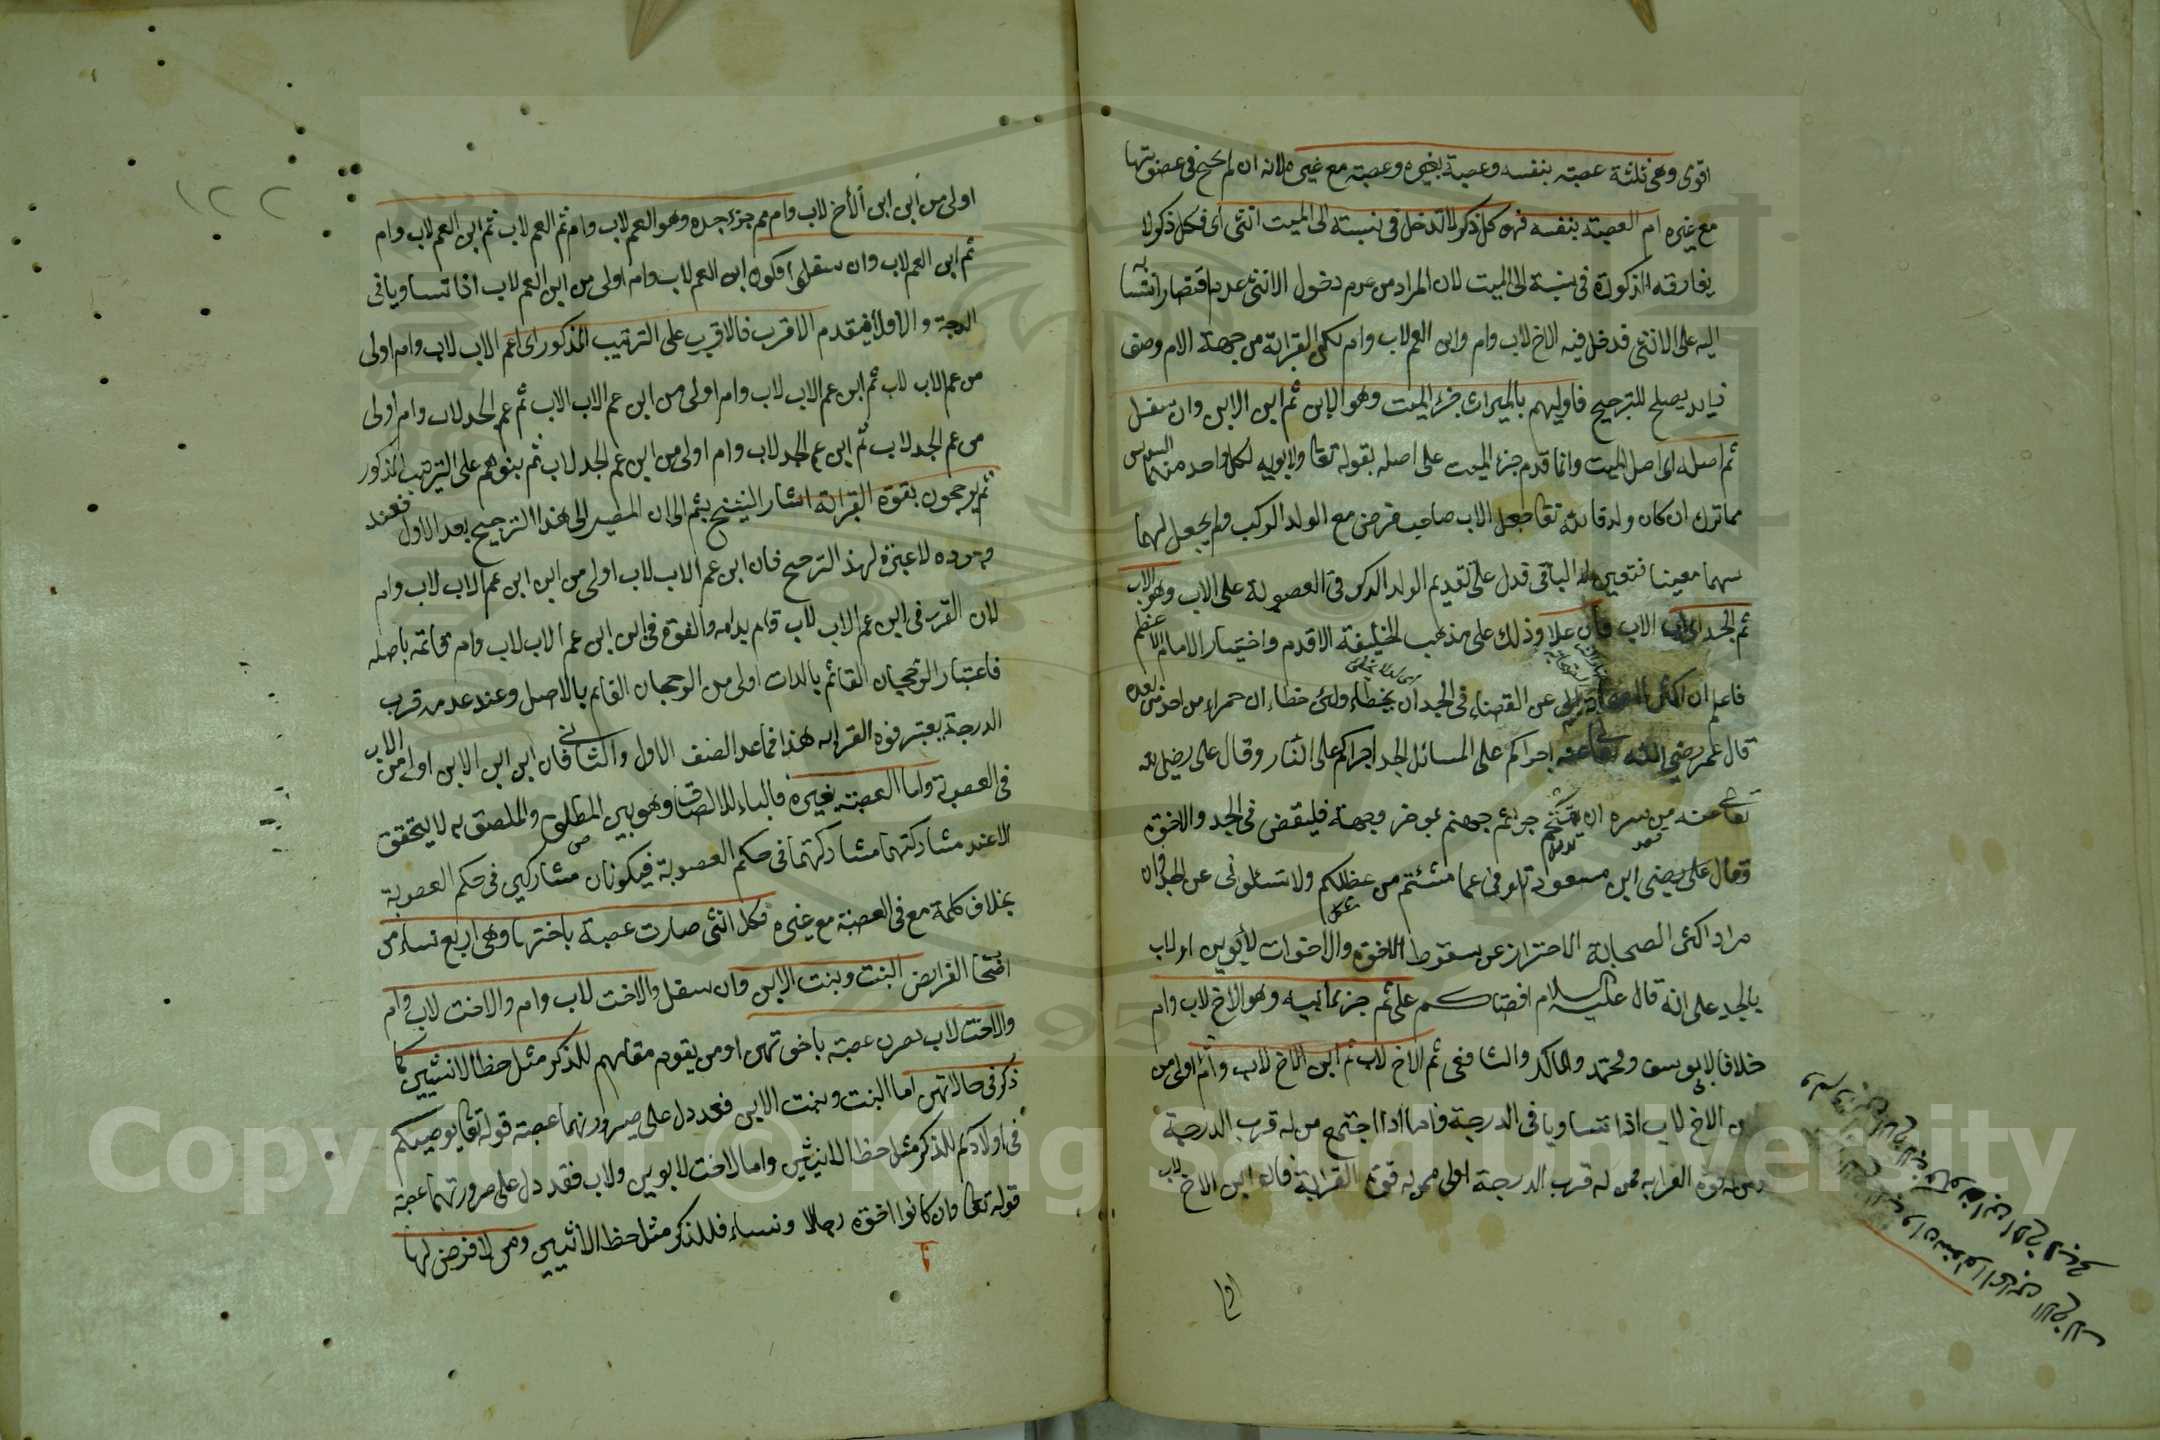 اقوى وهى ثلثة عصبته بنفسه وعصبة بغيره وعصبته مع غيره لانه ان لم يحتج فى عصوبتها
مع غيره ام العصبته بنفسه فهو كل ذكر لا تدخل فى نسبته الى الميت انثى اى فكل ذكر لا
يفارقه الذكورة فى نسبة الى الميت لان المراد من عدم دخول الانثى عدم اقتصار انتسابه
اليه على الانثى فدخل فيه الاخ لاب وام وابن العم لاب وام لكن القرابة من جهة الام وصف
زيادة يصلح للترجيح فاوليهم بالميراث جزء الميت وهو الابن ثم ابن الابن وان سفل
ثم اصله اى اصل الميت وانما قدم جزء الميت على اصله بقوله تعا ولابويه لكل واحد منهما السدس
مما ترك ان كان ولد فالله تعا جعل الاب صاحب فرض مع الولد الذكر ولم يجعل لهما
سهما معينا فتعين له الباقى فدل على تقديم الولد الذكر فى العصوبة على الاب وهو الاب
ثم الجد اى اب الاب وان علا وذلك على مذهب الخليفة الاقدم واختيار الامام الاعظم
فاعلم ان اكثر الصحابة عن القضاء فى الجد ان يخطاء
قال عمر رضى الله تعا عنه اجراكم على المسائل الجد اجراكم على النار وقال على رضى الله
تعا عنه من سره ان يتقحم جراثيم جهنم وجهه فليقض فى الجد والاخوة
وقال على رضى ابن مسعود عما شئتم من عظلكم ولا تسئلونى عن الجد فان
مراد اكثر الصحابة الاحتراز عن سقوط الاخوة والاخوات لابوين او لاب
بالجد على انه قال عليه السلام افضاكم على ثم جزء ابيه وهو الاخ لاب وام
خلافا لابى يوسف ومحمد والمالك والشافعى ثم الاخ لاب ثم ابن الاخ لاب وام اولى من
ابن الاخ لاب اذا تساويا فى الدرجة واما اذا اجتمع من له قرب الدرجة
ومن له قوة القرابة فمن له قرب الدرجة اولى ممن له قوة القرابة فان ابن الاخ لاب
اولى
اولى من ابن ابن الأخ لاب وام ثم جزء جده وهو العم لاب وام ثم العم لاب ثم ابن العم لاب وام
ثم ابن العم لاب وان سفلوا فكون ابن العم لاب وام اولى من ابن العم لاب اذا تساويا فى
الدرجة والا فلا فيقدم الاقرب فالاقرب على الترتيب المذكور اى عم الاب لاب وام اولى
من عم الاب لاب ثم ابن عم الاب لاب وام اولى من ابن عم الاب لاب ثم عم الجد لاب وام اولى
من عم الجد لاب ثم ابن عم الجد لاب وام اولى من ابن عم الجد لاب ثم بنوهم على الترتيب المذكور
ثم يرجحون بقوة القرابة اشار الشيخ بثم الى ان المصير الى هذا الترجيح بعد الاول فعند
وجوده لا عبرة لهذ الترجيح فان ابن عم الاب لاب اولى من ابن ابن عم الاب لاب وام
لان القرب فى ابن عم الاب لاب قام بذاته والقوة فى ابن ابن عم الاب لاب وام قائمة باصله
فاعتبار الرجحان القائم بالذات اولى من الرجحان القايم بالاصل وعند عدم قرب
الدرجة يعتبر قوة القرابه هذا فماعد الصنف الاول والثانى فان ابن ابن الابن اولى من الاب
فى العصوبة واما العصبته بغيره فالباء للالصاق وهو بين الملصق والملصق به لا يتحقق
الا عند مشاركتهما مشاركتهما فى حكم العصوبة فيكونان مشاركين فى حكم العصوبة
بخلاف كلمة مع فى العصبته مع غيره فكل انثى صارت عصبة باختها وهى اربع نساء من
اصحا الفرايض البنت وبنت الابن وان سفل والاخت لاب وام والاخت لاب وام
والاخت لاب يصرن عصبته باخوتهن او من يقوم مقامهم للذكر مثل حظ الانثيين كما
ذكر فى حالاتهن اما البنت وبنت الابن فقد دل على صيرورتهما عصبته قوله تعا يوصيكم
فى اولادكم للذكر مثل حظ الانثيين واما الاخت لابوين ولاب فقد دل على صيرورتهما عصبة
قوله تعا وان كانوا اخوة رجالا ونساء فللذكر مثل حظ الانثيين ومن لا فرض لها
١٢٢
Copyright © King Saud University
1957